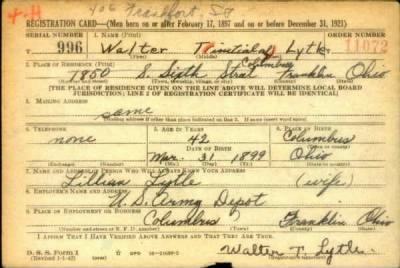 406 Frankfort St
REGISTRATION CARD—(Men born on or after February 17, 1897 and on or before December 31, 1921)
SERIAL NUMBER 1. NAME (Print) ORDER NUMBER
996 Walter Lytle 11072
(First) (Middle) (Last)
2. PLACE OF RESIDENCE (Print) Columbus
1850 S. Sixth Street Franklin Ohio
(Number and street) (Town, township, village, or city) (County) (State)
[THE PLACE OF RESIDENCE GIVEN ON THE LINE ABOVE WILL DETERMINE LOCAL BOARD
JURISDICTION; LINE 2 OF REGISTRATION CERTIFICATE WILL BE IDENTICAL]
3. MAILING ADDRESS
same
[Mailing address if other than place indicated on line 2. If same insert word same]
4. TELEPHONE 5. AGE IN YEARS 6. PLACE OF BIRTH
none 42 Columbus
DATE OF BIRTH (Town or county)
Mar. 31 1899 Ohio
(Exchange) (Number) (Mo.) (Day) (Yr.) (State or country)
7. NAME AND ADDRESS OF PERSON WHO WILL ALWAYS KNOW YOUR ADDRESS
Lillian Lytle (wife)
8. EMPLOYER'S NAME AND ADDRESS
U. S. Army Depot
9. PLACE OF EMPLOYMENT OR BUSINESS
Columbus Franklin Ohio
(Number and street or R. F. D. number) (Town) (County) (State)
I AFFIRM THAT I HAVE VERIFIED ABOVE ANSWERS AND THAT THEY ARE TRUE.
D. S. S. Form 1 GPO 16—21630-2 Walter T. Lytle
(Revised 1-1-42) (over)